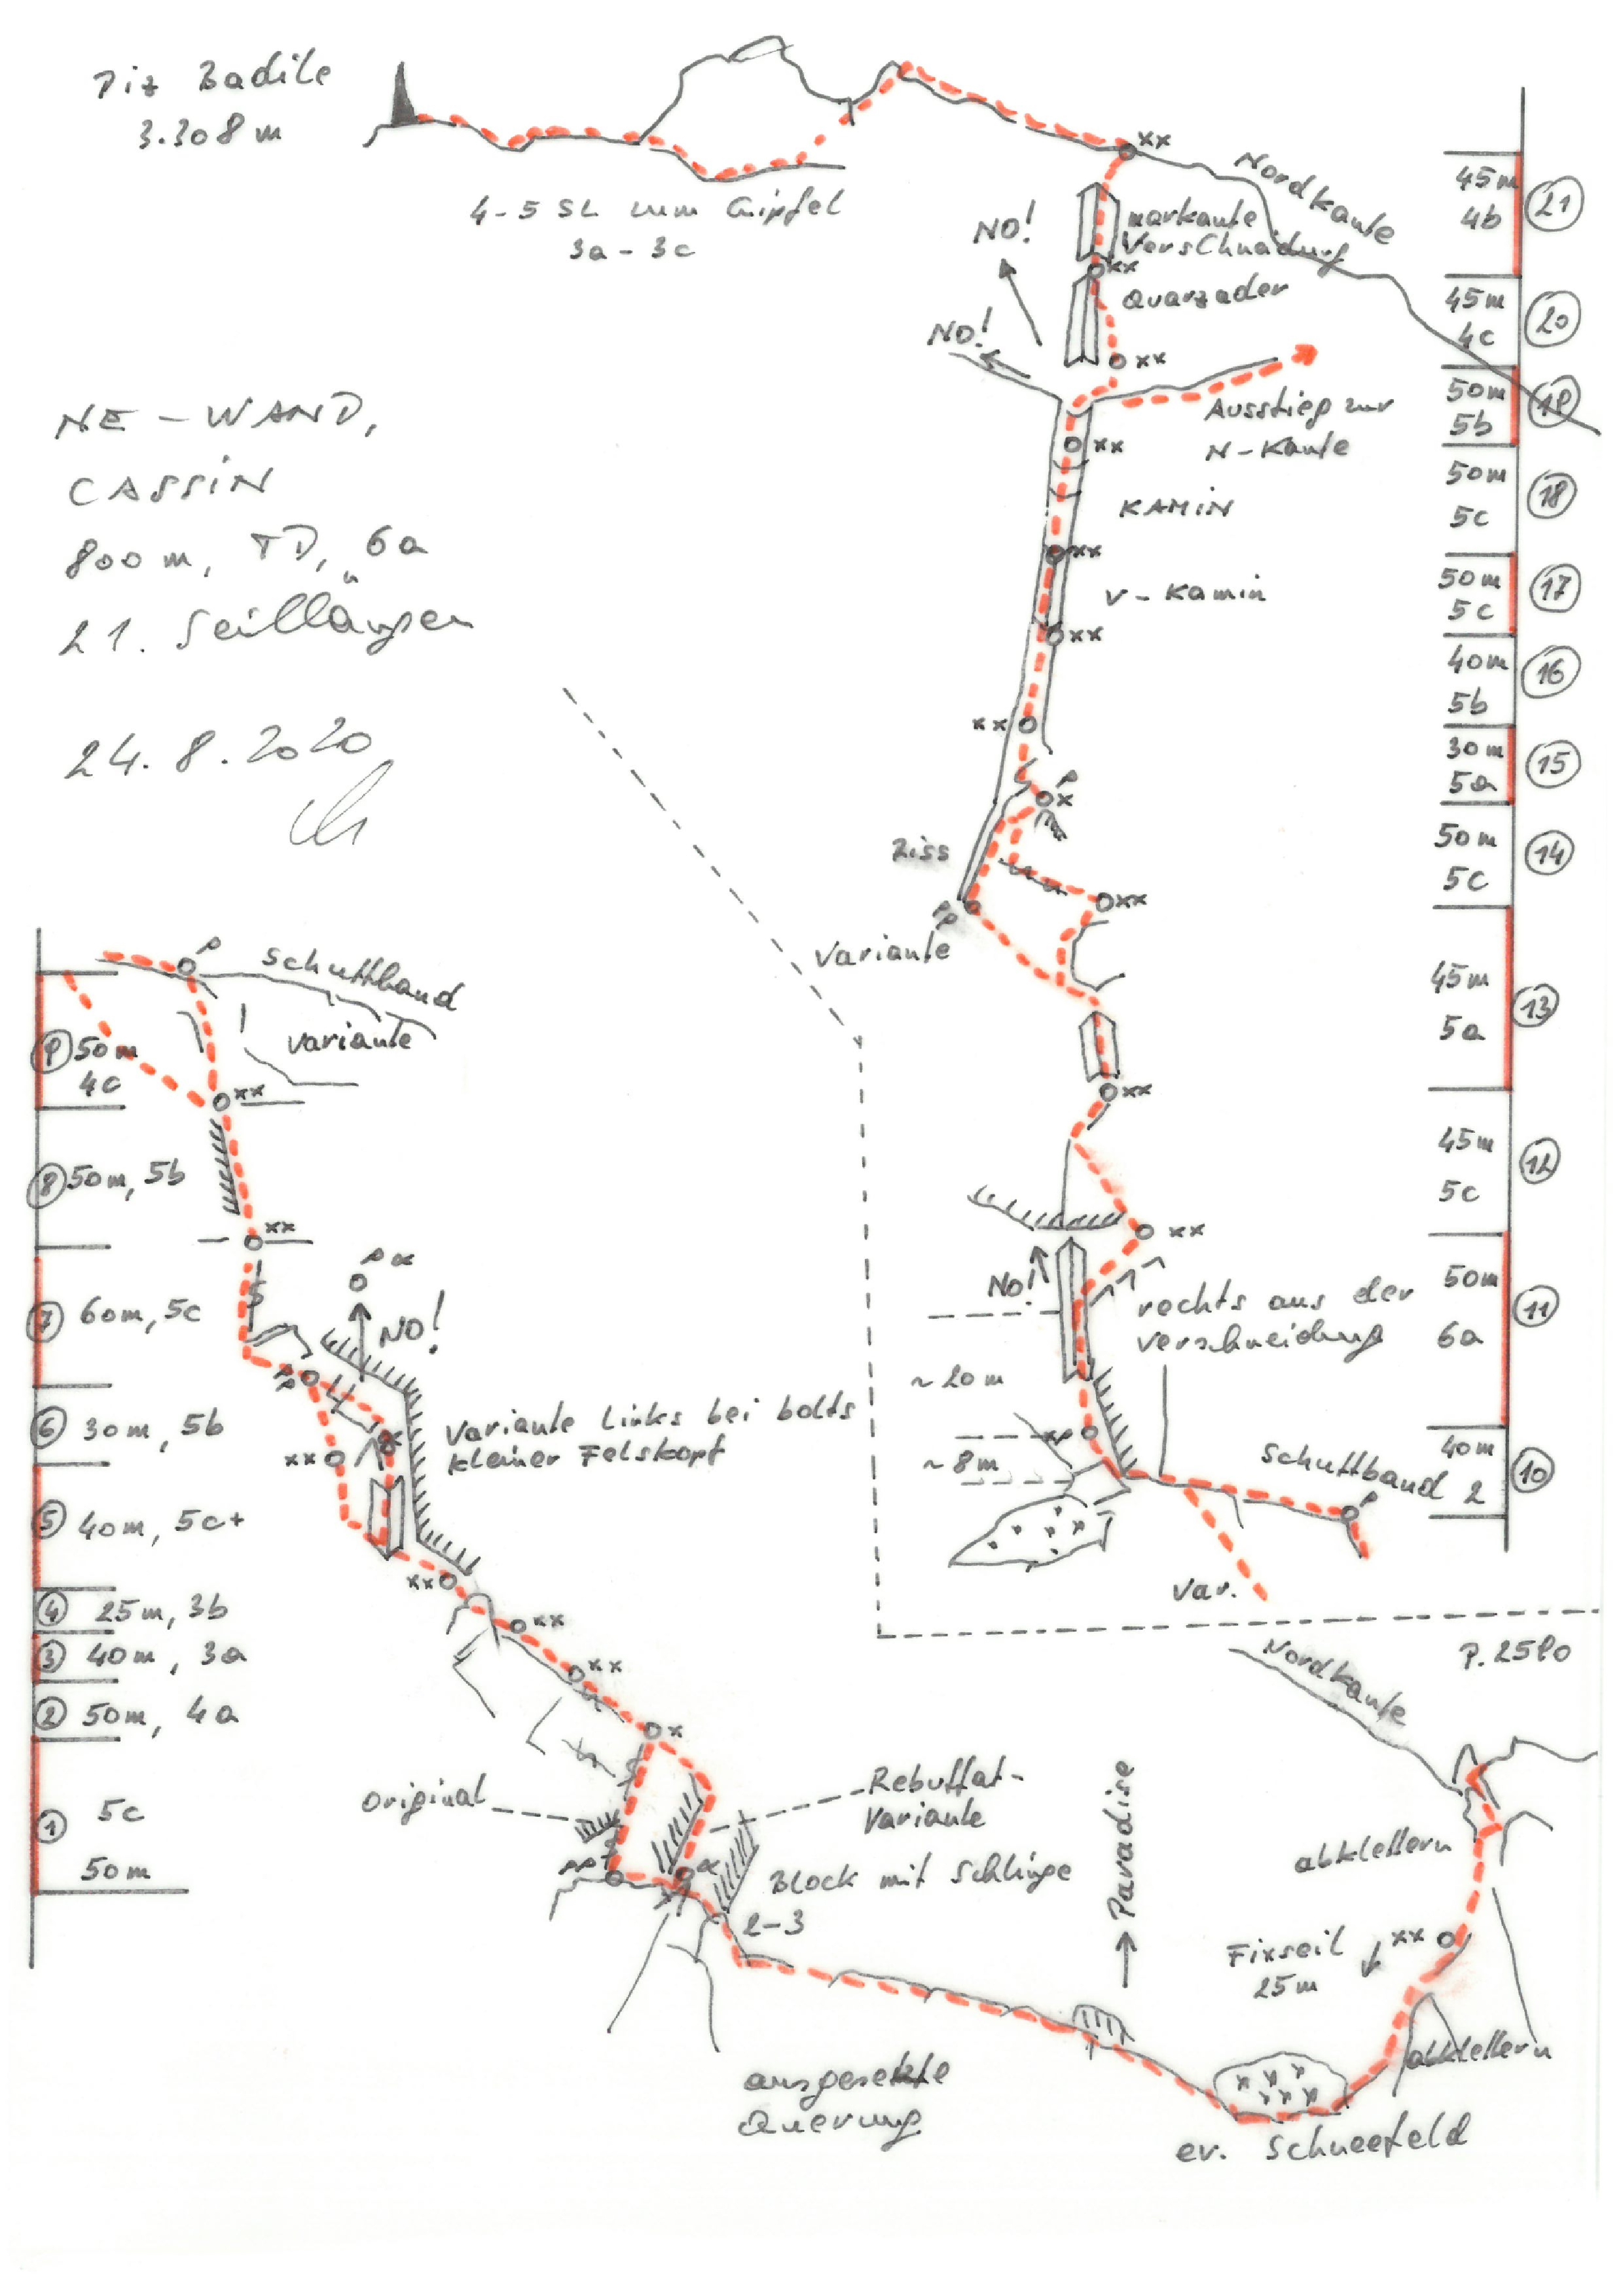 Piz Badile
3.308 m
4-5 SL zum Gipfel
3a - 3c
NE - WAND,
CASSIN
800 m, TD, 6a
21. Seillängen
24. 8. 2020
xx
Nordkante
NO!
markante
Verschneidung
xx
Quarzader
NO!
xx
Ausstieg zur
N-Kante
xx
KAMIN
xx
V-Kamin
xx
xx
p
x
Riss
xx
pp
Variante
xx
xx
NO!
rechts aus der
Verschneidung
~ 20 m
xp
~ 8 m
Schuttband 2
p
var.
45m
4b
21
45m
4c
20
50m
5b
19
50m
5c
18
50m
5c
17
40m
5b
16
30m
5a
15
50m
5c
14
45m
5a
13
45m
5c
12
50m
6a
11
40m
10
p
Schuttband
Variante
9 50m
4c
xx
8 50m, 5b
xx
p α
NO!
7 60m, 5c
pp
6 30m, 5b
xx
Variante links bei bolts
kleiner Felskopf
5 40m, 5c+
xx
4 25m, 3b
xx
3 40m, 3a
xx
2 50m, 4a
x
1 5c
50m
Original
Rebuffat-
Variante
pp
α
Block mit Schlinge
2-3
ausgesetzte
Querung
→ Paradise
Nordkante
P. 2590
abklettern
Fixseil
25m
xx
abklettern
ev. Schneefeld